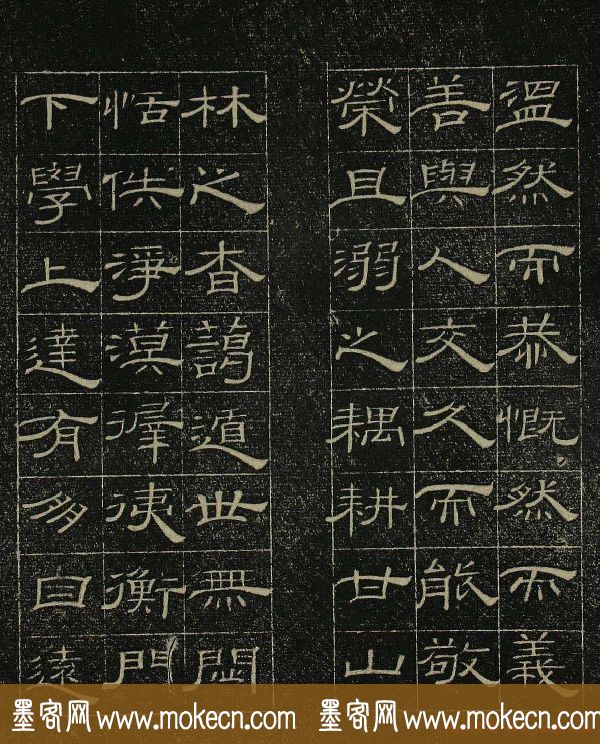 溫然而恭慨然而義
善與人交久而能敬
榮且溺之耦耕甘山
林之杳藹遁世無悶
恬佚淨漠徲㣢衡門
下學上達有朋自遠
墨客网 www.mokecn.com 墨客网 www.mokecn.com